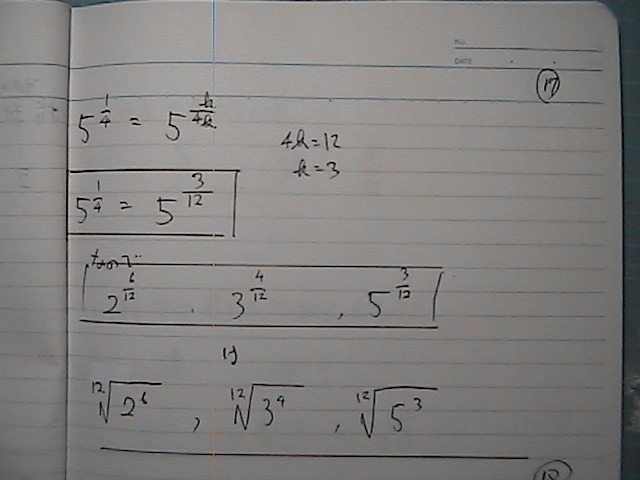 No.
DATE
17
5^{\frac{1}{4}} = 5^{\frac{k}{4k}}
4k=12
k=3
5^{\frac{1}{4}} = 5^{\frac{3}{12}}
2^{\frac{6}{12}} . 3^{\frac{4}{12}} , 5^{\frac{3}{12}}
\sqrt[12]{2^6} , \sqrt[12]{3^4} , \sqrt[12]{5^3}